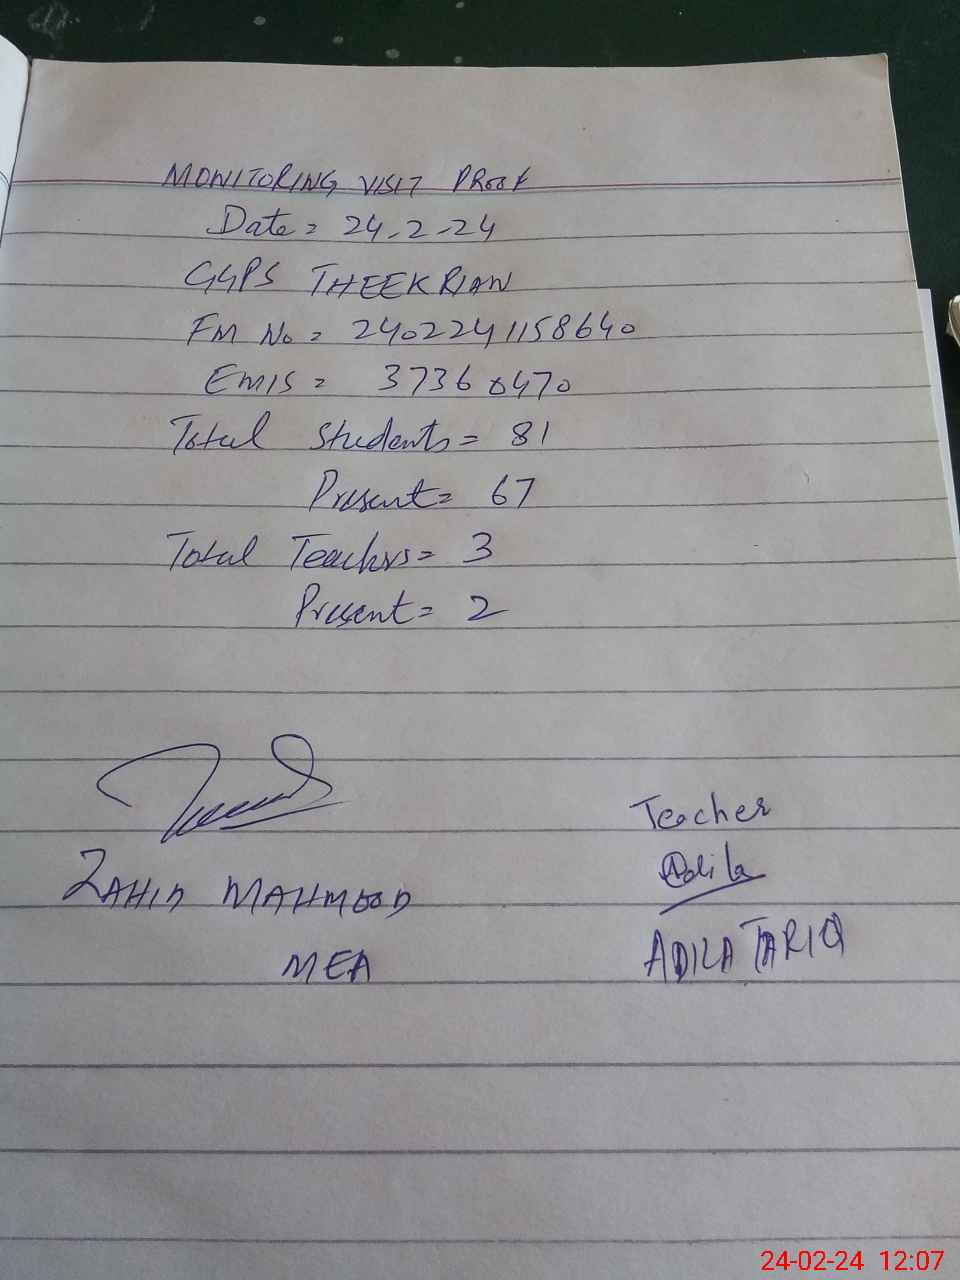 MONITORING VISIT PROOF
Date = 24-2-24
GGPS THEEKRIAN
FM No = 2402241158640
EMIS = 37360470
Total Students = 81
Present = 67
Total Teachers = 3
Present = 2
Teacher
Adila
ZAHID MAHMOOD
ADILA TARIQ
MEA
24-02-24 12:07